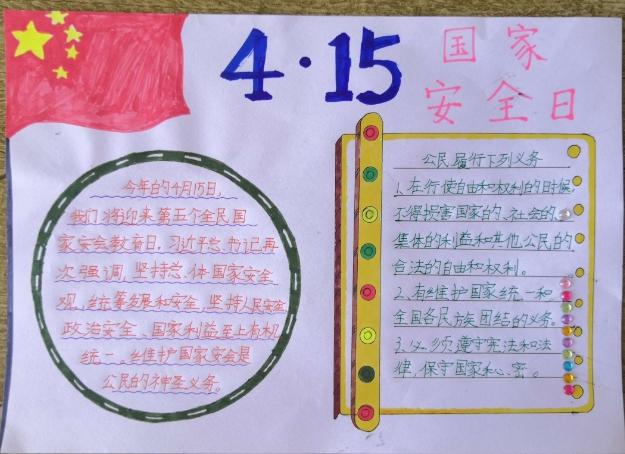 4·15
国家
安全日
今年的4月15日，
我们将迎来第五个全民国
家安全教育日。习近平总书记再
次强调，坚持总体国家安全
观，统筹发展和安全，坚持人民安全
政治安全、国家利益至上有机
统一。维护国家安全是
公民的神圣义务。
公民履行下列义务
1、在行使自由和权利的时候，
不得损害国家的、社会的、
集体的利益和其他公民的
合法的自由和权利。
2、有维护国家统一和
全国各民族团结的义务。
3、必须遵守宪法和法
律，保守国家秘密。